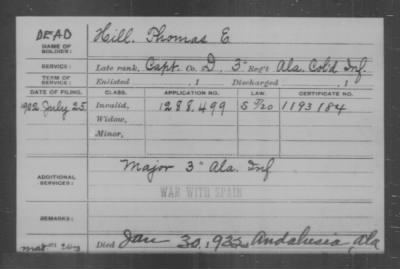 DEAD
NAME OF SOLDIER: Hill, Thomas E
SERVICE: Late rank, Capt. Co. D, 3" Reg't Ala. Col'd Inf.
TERM OF SERVICE: Enlisted , 1 Discharged , 1
DATE OF FILING. CLASS. APPLICATION NO. LAW. CERTIFICATE NO.
1902 July 25 Invalid, 1288.499 1193184
Widow,
Minor,
ADDITIONAL SERVICES: Major 3" Ala. Inf
WAR WITH SPAIN
REMARKS:
Died Jan 30, 1933, Andalusia, Ala